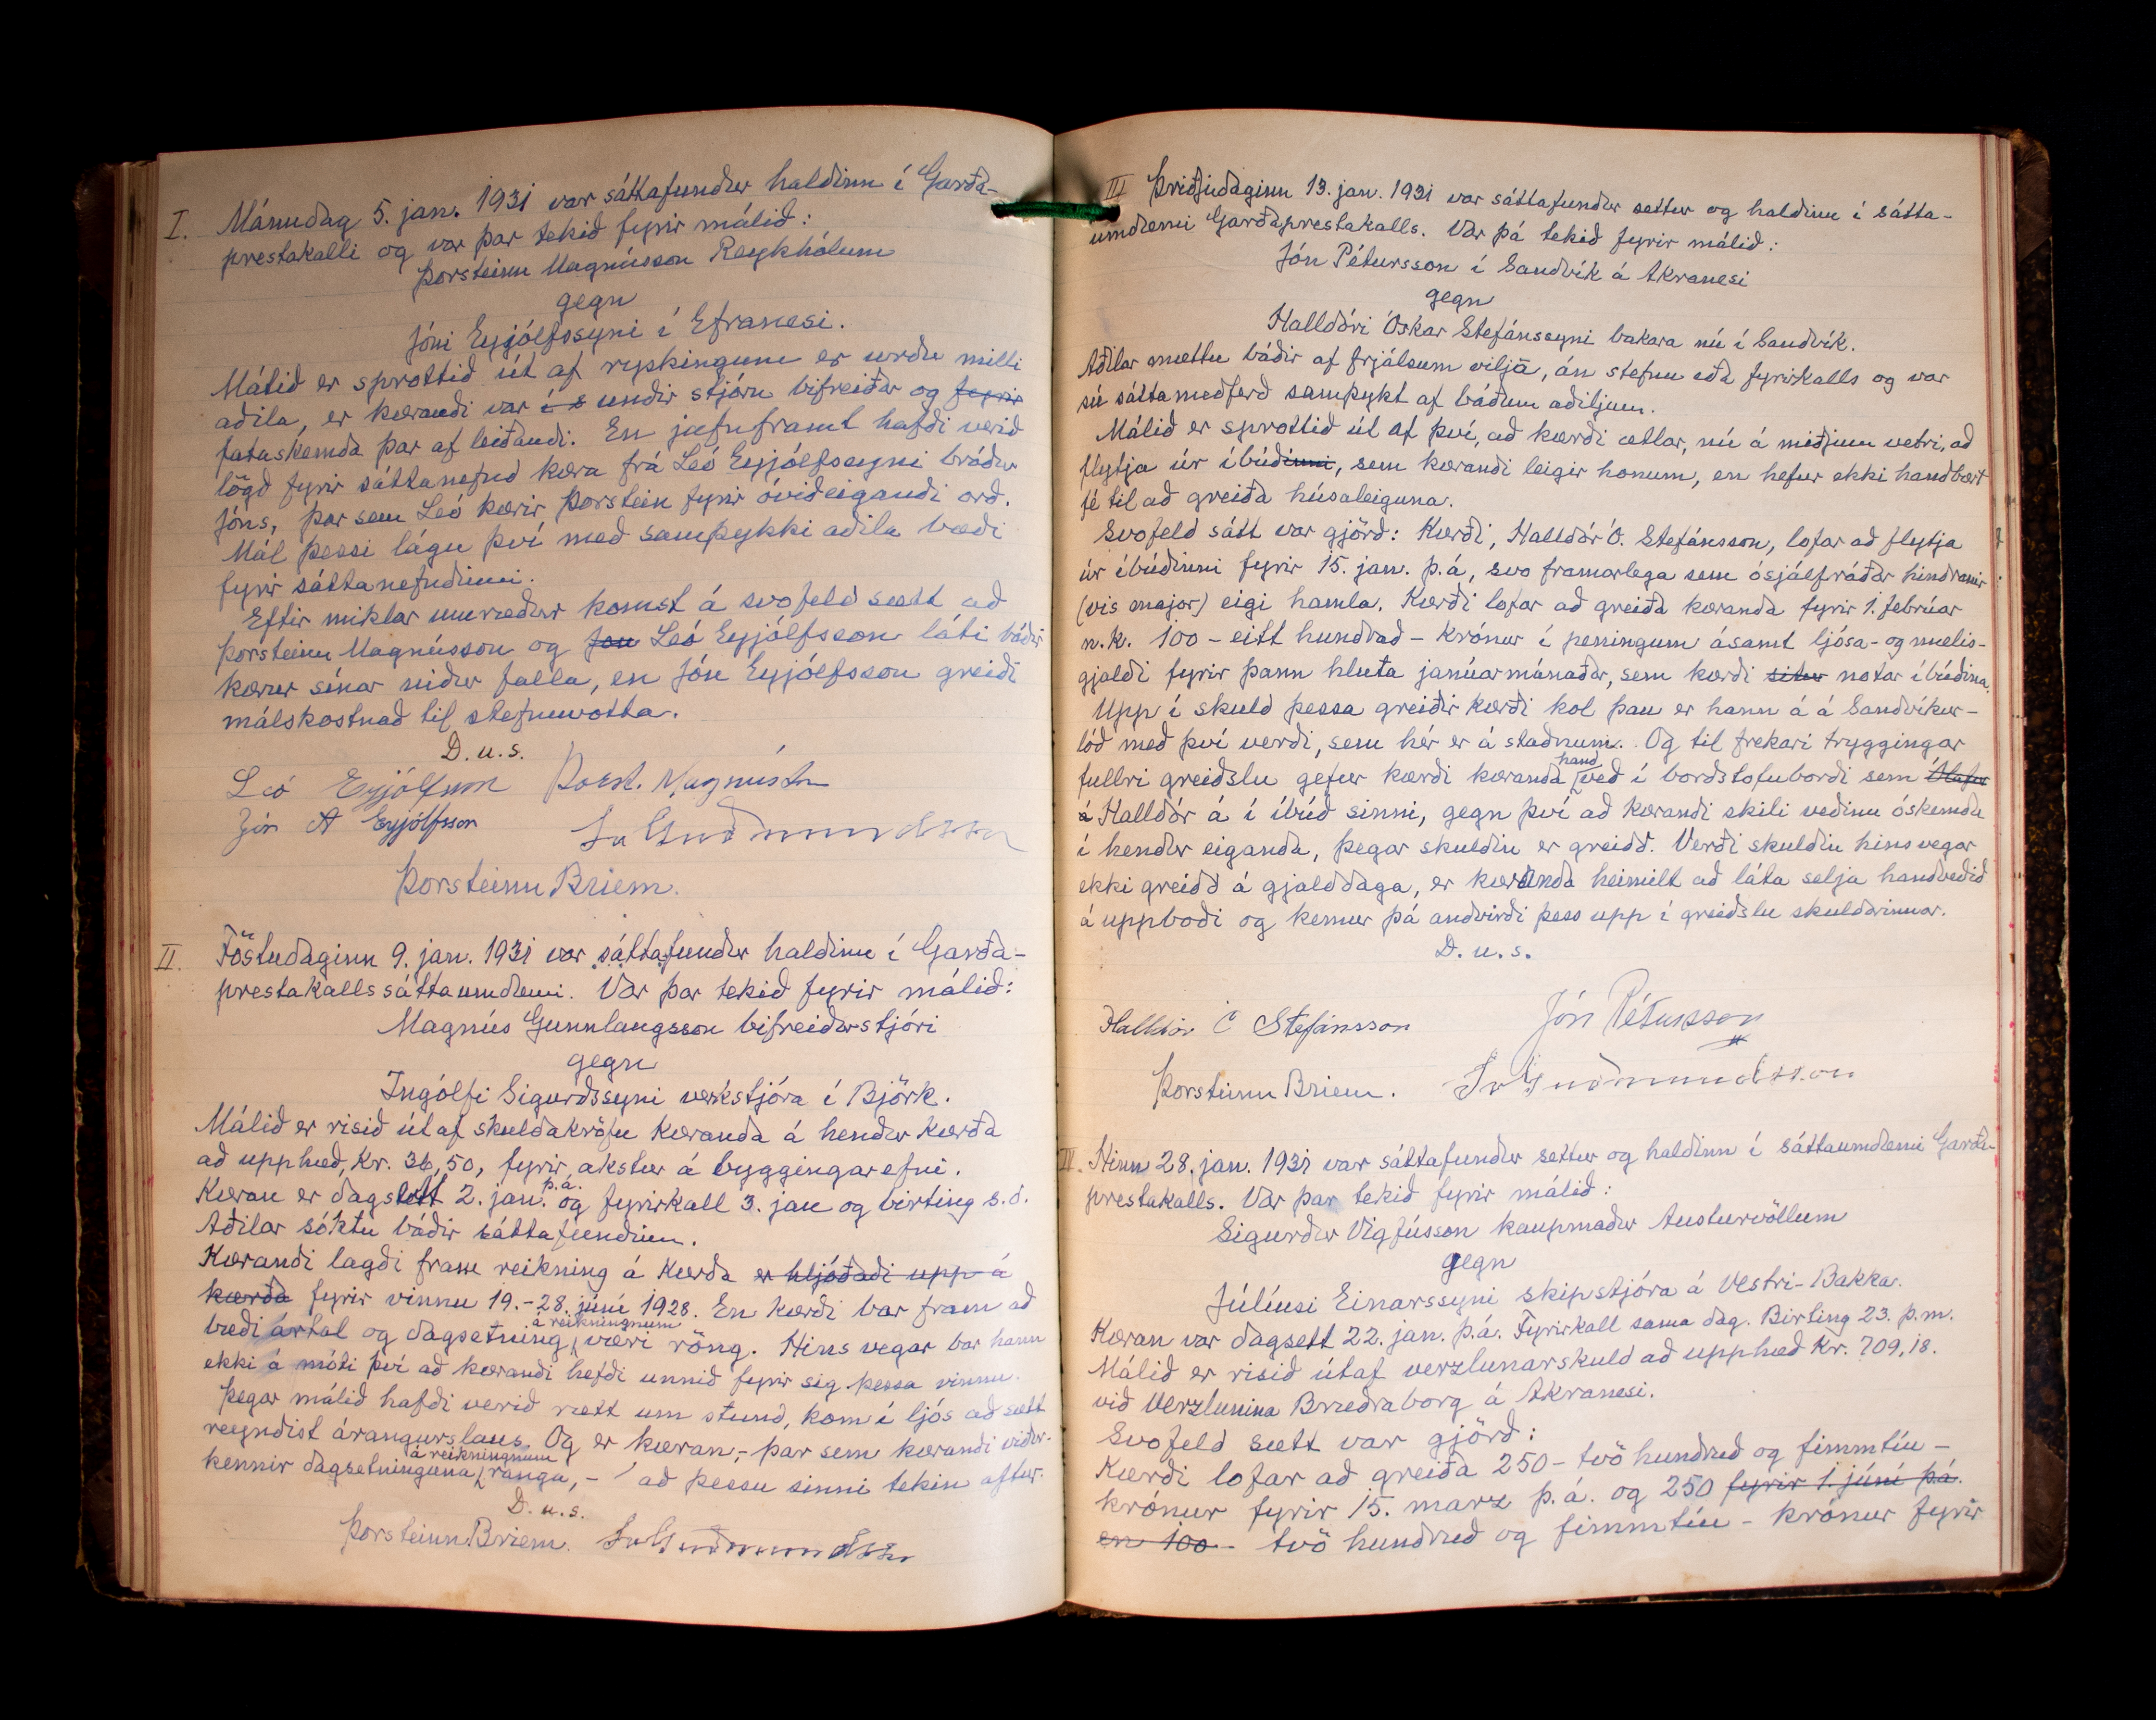 I. Mánudag 5. jan. 1931 var sáttafundur haldinn í Garða-
prestakalli og var þar tekið fyrir málið:
Þorsteinn Magnússon Reykhólum
gegn
Jóni Eyjólfssyni í Efranesi.
Málið er sprottið út af ryskingum er urðu milli
aðila, er kærandi var í s undir stjórn bifreiðar og fyrir
fataskemda þar af leiðandi. En jafnframt hafði verið
lögð fyrir sáttanefnd kæra frá Leó Eyjólfssyni bróður
Jóns, þar sem Leó kærir Þorstein fyrir óviðeigandi orð.
Mál þessi lágu því með samþykki aðila bæði
fyrir sáttanefndinni.
Eftir miklar umræður komst á svofeld sætt að
Þorsteinn Magnússon og Jón Leó Eyjólfsson láti báðir
kærur sínar niður falla, en Jón Eyjólfsson greiði
málskostnað til stefnuvotta.
D.u.s.
Leó Eyjólfsson Þorst. Magnússon
Jón A Eyjólfsson Sv Guðmundsson
Þorsteinn Briem.
II. Föstudaginn 9. jan. 1931 var sáttafundur haldinn í Garða-
prestakallssáttaumdæmi. Var þar tekið fyrir málið:
Magnús Gunnlaugsson bifreiðarstjóri
gegn
Ingólfi Sigurðssyni verkstjóra í Björk.
Málið er risið út af skuldakröfu kæranda á hendur kærða
að upphæð, Kr. 36,50, fyrir akstur á byggingarefni.
Kæran er dagsett 2. jan. þ.á. og fyrirkall 3. jan og birting s.d.
Aðilar sóktu báðir sáttafundinn.
Kærandi lagði fram reikning á kærða er hljóðaði upp á
kærða fyrir vinnu 19.-28. júní 1928. En kærði bar fram að
bæði ártal og dagsetning á reikningnum væri röng. Hins vegar bar hann
ekki á móti því að kærandi hefði unnið fyrir sig þessa vinnu.
Þegar málið hafði verið rætt um stund, kom í ljós að sætt
reyndist árangurslaus. Og er kæran,- þar sem kærandi viður-
kennir dagsetninguna á reikningnum ranga, - að þessu sinni tekin aftur.
D.u.s.
Þorsteinn Briem. Sv Guðmundsson
III Þriðjudaginn 13. jan. 1931 var sáttafundur settur og haldinn í sátta-
umdæmi Garðaprestakalls. Var þá tekið fyrir málið:
Jón Pétursson í Sandvík á Akranesi
gegn
Halldóri Óskar Stefánssyni bakara nú í Sandvík.
Aðilar mættu báðir af frjálsum vilja, án stefnu eða fyrirkalls og var
sú sáttameðferð samþykt af báðum aðiljum.
Málið er sprottið út af því, að kærði ætlar, nú á miðjum vetri, að
flytja úr íbúðinni, sem kærandi leigir honum, en hefur ekki handbært
fé til að greiða húsaleiguna.
Svofeld sátt var gjörð: Kærði, Halldór Ó. Stefánsson, lofar að flytja
úr íbúðinni fyrir 15. jan. þ.á, svo framarlega sem ósjálfráðar hindranir
(vis major) eigi hamla. Kærði lofar að greiða kæranda fyrir 1. febrúar
n.k. 100 - eitt hundrað - krónur í peningum ásamt ljósa- og mælis-
gjaldi fyrir þann hluta janúarmánaðar, sem kærði situr notar íbúðina.
Upp í skuld þessa greiðir kærði kol þau er hann á á Sandvíkur-
lóð með því verði, sem hér er á staðnum. Og til frekari tryggingar
fullri greiðslu gefur kærði kæranda hand veð í borðstofuborði sem Ólafur
á Halldór á í íbúð sinni, gegn því að kærandi skili veðinu óskemdu
í hendur eiganda, þegar skuldin er greidd. Verði skuldin hins vegar
ekki greidd á gjalddaga, er kæranda heimilt að láta selja handveðið
á uppboði og kemur þá andvirði þess upp í greiðslu skuldarinnar.
D.u.s.
Halldór Ó Stefánsson Jón Pétursson
Þorsteinn Briem. Sv Guðmundsson
IV. Hinn 28. jan. 1931 var sáttafundur settur og haldinn í sáttaumdæmi Garða-
prestakalls. Var þar tekið fyrir málið:
Sigurður Vigfússon kaupmaður Austurvöllum
gegn
Júlíusi Einarssyni skipstjóra á Vestri-Bakka.
Kæran var dagsett 22. jan. þ.á. Fyrirkall sama dag. Birting 23. þ.m.
Málið er risið útaf verzlunarskuld að upphæð Kr. 709,18.
við Verzlunina Bræðraborg á Akranesi.
Svofeld sætt var gjörð:
Kærði lofar að greiða 250 - tvö hundruð og fimmtíu -
krónur fyrir 15. marz þ.á. og 250 fyrir 1. júní þ.á.
en 100 - tvö hundruð og fimmtíu - krónur fyrir